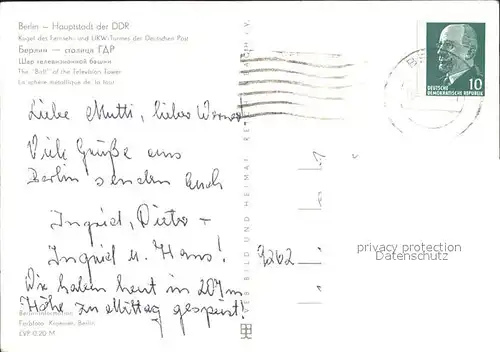 Berlin – Hauptstadt der DDR
Kugel des Fernseh- und UKW-Turmes der Deutschen Post
Берлин – столица ГДР
Шар телевизионной башни
The "Ball" of the Television Tower
La sphère métallique de la tour
Liebe Mutti, lieber Werner!
Viele Grüße aus
Berlin senden Euch
Ingrid, Dieter –
Ingrid u. Hans!
Wir haben heut in 207 m
Höhe zu Mittag gespeist!
Berlin-Information
Farbfoto: Berlin
EVP 0,20 M
VEB BILD UND HEIMAT
DEUTSCHE
DEMOKRATISCHE REPUBLIK
10
9262
privacy protection
Datenschutz